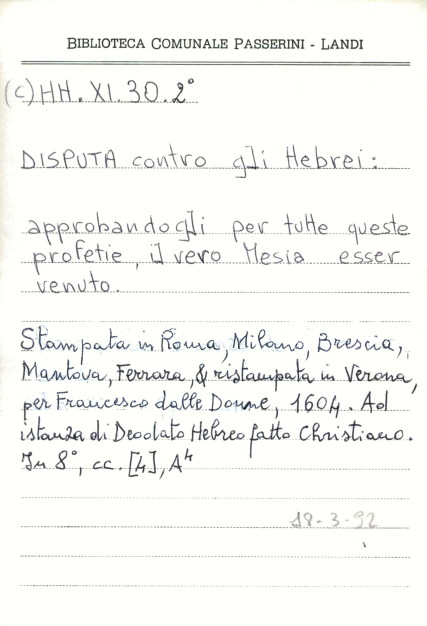 BIBLIOTECA COMUNALE PASSERINI - LANDI
(C) HH. XI. 30. 2°
DISPUTA contro gli Hebrei:
approbandogli per tutte queste
profetie, il vero Mesia esser
venuto.
Stampata in Roma, Milano, Brescia,
Mantova, Ferrara, & ristampata in Verona,
per Francesco dalle Donne, 1604. Ad
istanza di Deodato Hebreo fatto Christiano.
In 8°, cc. [4], A⁴
18-3-92